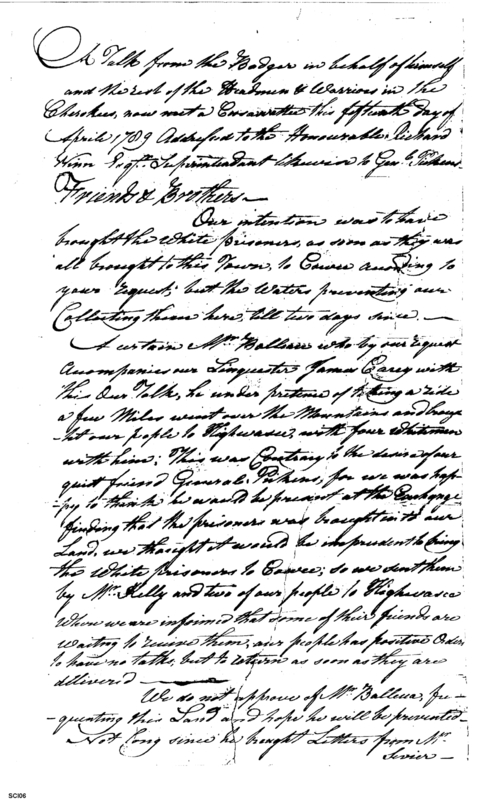 A Talk from the Badger in behalf of himself
and the rest of the Headmen & Warriors in the
Cherokees, now met a Cusawattee this fifteenth day of
April 1789 Addressed to the Honourable Richard
Winn Esqr. Superintendant likewise to Genl. Pickens
Friends & Brothers
Our intention was to have
brought the White prisoners, as soon as they was
all brought to this Town, to Cowee according to
your request; but the Waters preventing our
Collecting them here, till two days since. —
A certain Mr. Ballew who by our request
Accompanies our Linguister James Carey with
this Our Talk, he under pretence of taking a ride
a few Miles went over the Mountains and broug
-ht our people to Highwasee, with four Whitemen
with him: This was Contrary to the desire of our
great friend General Pickens, for we was hap-
-py to think he would be present at the Exchange
finding that the prisoners was brought in to our
Land, we thought it would be imprudent to bring
the White prisoners to Cowee; so we sent them
by Mr. Kelly and two of our people to Highwasee
Where we are informed that some of their friends are
waiting to receive them, our people has positive Orders
to have no talks, but to return as soon as they are
delivered —
We do not approve of Mr. Ballew, fre-
-quenting this Land and hope he will be prevented
Not long since he brought Letters from Mr.
Sevier —
SCI06